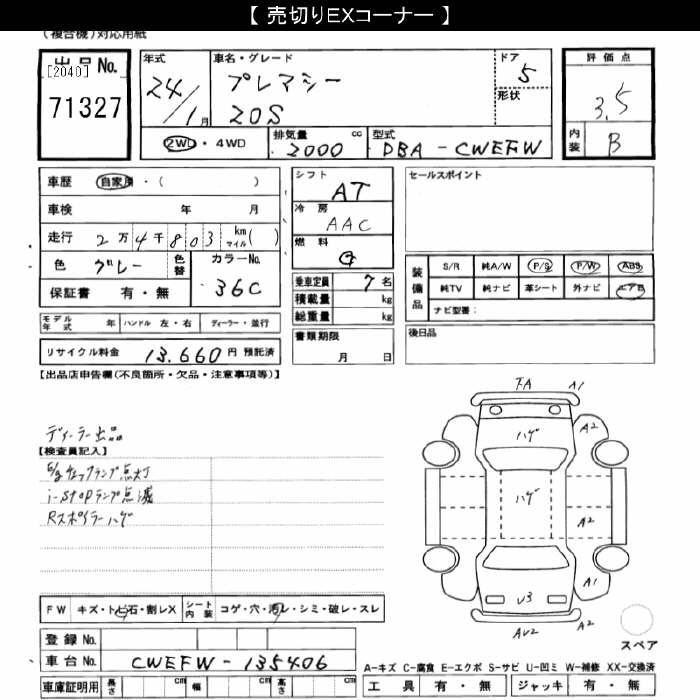 【 売切りEXコーナー 】
(複合機)対応用紙
出品No.
[2040]
71327
年式
24/1月
車名・グレード
プレマシー
20S
ドア
5
形状
評価点
3.5
内装
B
2WD・4WD
排気量 cc
2000
型式
DBA-CWEFW
車歴 自家用・( )
車検 年 月
走行 2万4千803 km マイル( )
色 グレー 色替 カラーNo.
36C
保証書 有・無
シフト
AT
冷房
AAC
燃料
G
乗車定員 7名
積載量 kg
総重量 kg
セールスポイント
装備品
S/R 純A/W P/S P/W ABS
純TV 純ナビ 革シート 外ナビ エアB
ナビ型番:
モデル年式 年 ハンドル 左・右 ディーラー・並行
書類期限
月 日
後日品
リサイクル料金 13,660円 預託済
【出品店申告欄(不良箇所・欠品・注意事項等)】
ディーラー出品
【検査員記入】
E/gチェックランプ点灯
i-stopランプ点滅
Rスポイラーハゲ
FA
A1
A2
ハゲ
ハゲ
A2
A1
U3
AU2
スペア
FW キズ・トビ石・割レX シート内装 コゲ・穴・汚レ・シミ・破レ・スレ
登録No.
車台No. CWEFW-135406
車庫証明用 長さ cm 幅 cm 高さ cm
A-キズ C-腐食 E-エクボ S-サビ U-凹ミ W-補修 XX-交換済
工具 有・無 ジャッキ 有・無